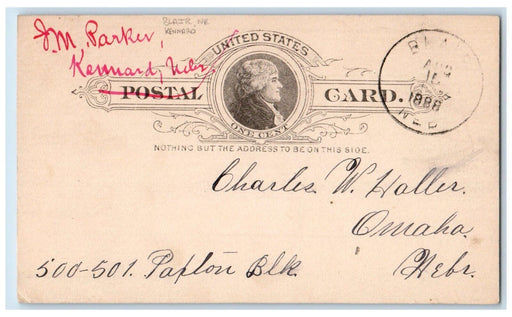 BLAIR, NE
KENNARD
J.M. Parker,
Kennard, Nebr.
UNITED STATES
POSTAL CARD.
ONE CENT
NOTHING BUT THE ADDRESS TO BE ON THIS SIDE.
BLAIR
AUG
1888
NEB
Charles W. Haller.
Omaha
500-501. Paxton Blk.
Nebr.